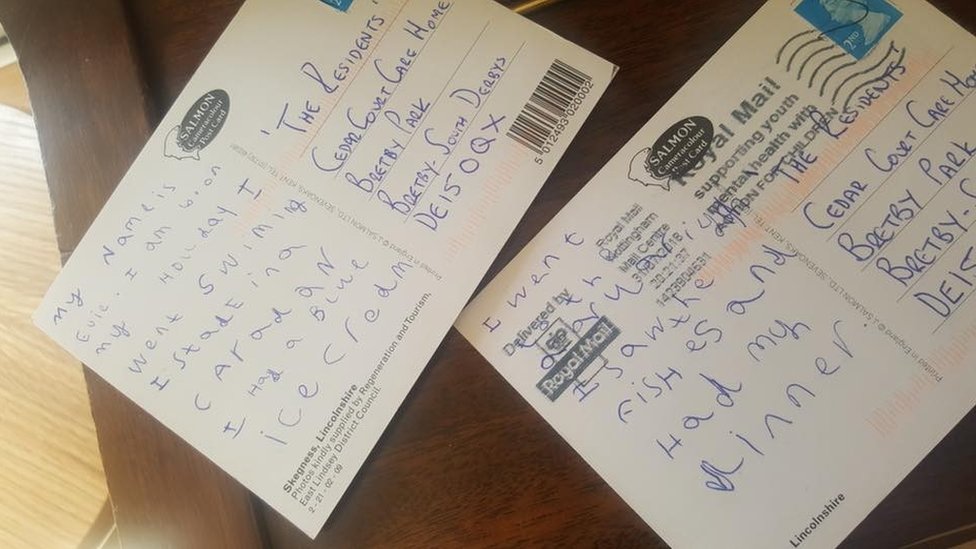 SALMON
Cameracolour
Post Card
My Name is
Evie. I am 6
my Holiday I
went Swiming
I Stade in a
Caradan
I Had a Blue
ice cream
'THE RESIDENTS'
CEDAR COURT CARE HOME
BRETBY PARK
BRETBY - SOUTH DERBYS
DE15 0QX
5 012493 020002
Printed in England © J. SALMON LTD., SEVENOAKS, KENT
Skegness, Lincolnshire
Photos kindly supplied by Regeneration and Tourism,
East Lindsey District Council.
2 - 21 - 02 - 09
2ND
Royal Mail
supporting youth
mental health with
ACTION FOR CHILDREN
SALMON
Cameracolour
Post Card
Royal Mail
Nottingham
Mail Centre
Delivered by
Royal Mail
I went
I saw the
FISH ES and
Had my
dinner
THE RESIDENTS
CEDAR COURT CARE HO
BRETBY PARK
BRETBY -
DE15
Printed in England © J. SALMON LTD., SEVENOAKS, KENT
Lincolnshire